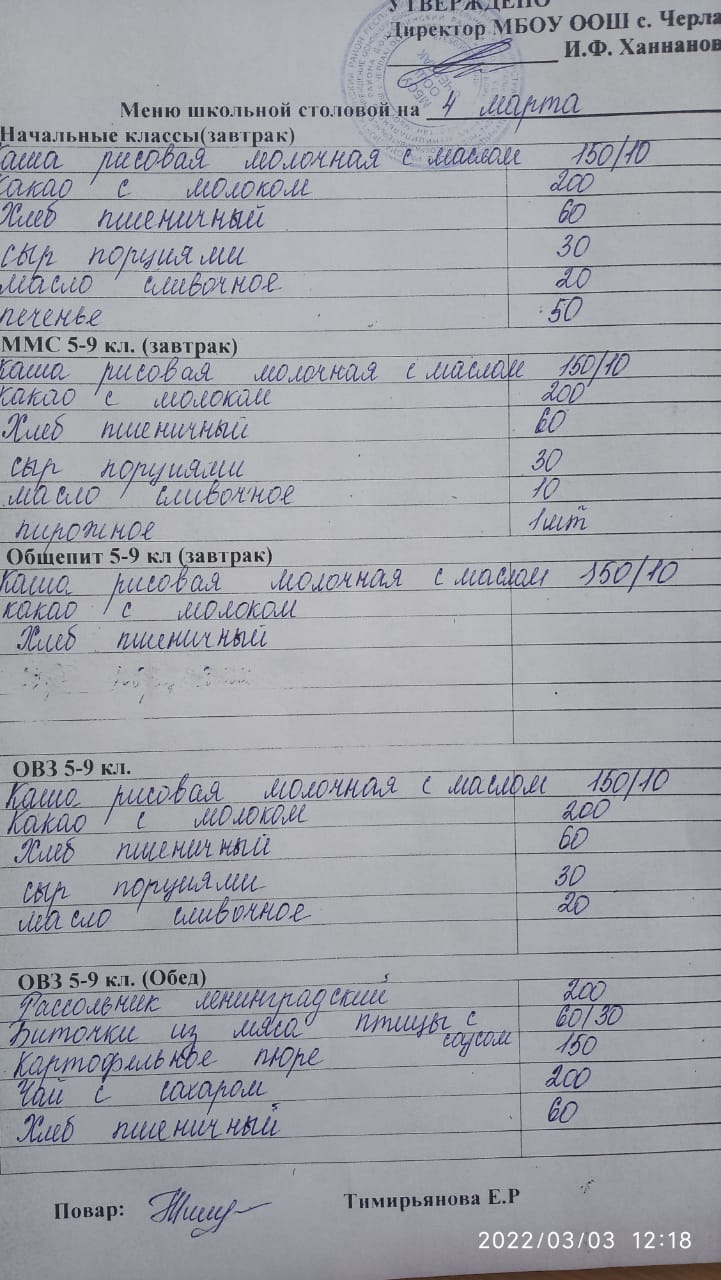 УТВЕРЖДЕНО
Директор МБОУ ООШ с. Черла
И.Ф. Ханнанов
Меню школьной столовой на 4 марта
Начальные классы(завтрак)
каша рисовая молочная с маслом 150/10
какао с молоком 200
Хлеб пшеничный 60
сыр порциями 30
масло сливочное 20
печенье 50
ММС 5-9 кл. (завтрак)
каша рисовая молочная с маслом 150/10
какао с молоком 200
Хлеб пшеничный 60
сыр порциями 30
масло сливочное 10
пирожное 1 шт
Общепит 5-9 кл (завтрак)
каша рисовая молочная с маслом 150/10
какао с молоком
Хлеб пшеничный
ОВЗ 5-9 кл.
Каша рисовая молочная с маслом 150/10
какао с молоком 200
Хлеб пшеничный 60
сыр порциями 30
масло сливочное 20
ОВЗ 5-9 кл. (Обед)
Рассольник ленинградский 200
Биточки из мяса птицы с соусом 60/30
Картофельное пюре 150
Чай с сахаром 200
Хлеб пшеничный 60
Повар: Тимирьянова Е.Р
2022/03/03 12:18